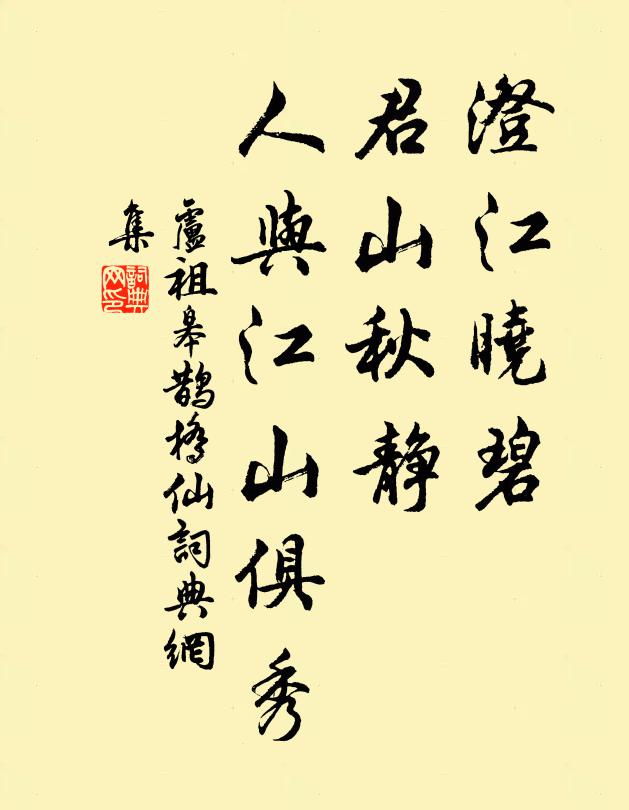 澄江曉碧
君山秋靜
人與江山俱秀
盧祖皋鵲橋仙詞典網
集
詞典
网印